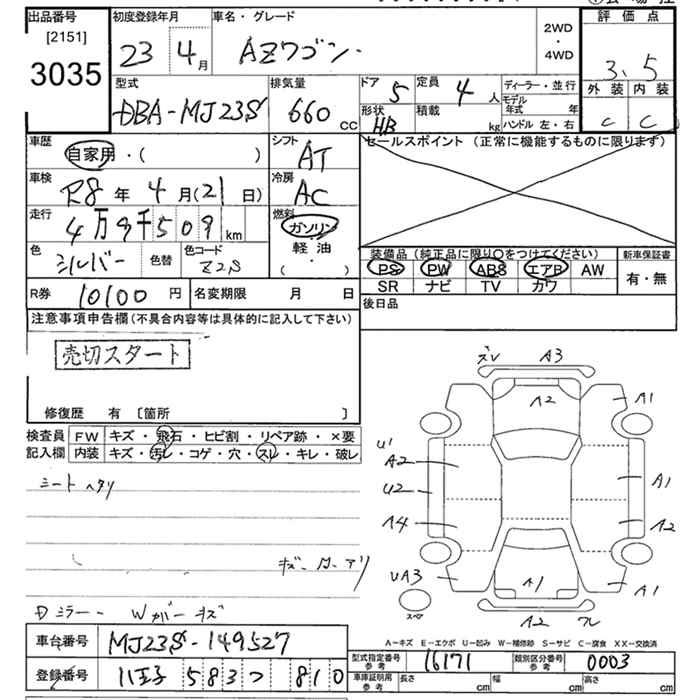 出品番号 初度登録年月 車名・グレード 評価点
[2151]
3035 23 4月 AZワゴン 2WD・4WD 3.5
外装 内装
C C
型式 排気量 ドア 定員 ディーラー・並行
DBA-MJ23S 660cc 5 4人 モデル年式 年
形状 積載
HB kg ハンドル 左・右
車歴 シフト セールスポイント (正常に機能するものに限ります)
自家用・( ) AT
車検 冷房
R8年 4月(21日) AC
走行 燃料
4万9千509km ガソリン
軽油
・
( )
色 色替 色コード
シルバー Z2S
装備品(純正品に限り〇をつけてください) 新車保証書
PS PW ABS エアB AW 有・無
SR ナビ TV カワ
R券 10100円 名変期限 月 日
後日品
注意事項申告欄(不具合内容等は具体的に記入して下さい)
売切スタート
修復歴 有 〔箇所 〕
検査員 FW キズ・飛石・ヒビ割・リペア跡・×要
記入欄 内装 キズ・汚レ・コゲ・穴・スレ・キレ・破レ
シートヘタリ
Dミラー Wカバーキズ
A3
A2
A1
U'
A2
U2
A1
A4
A2
UA3
A1
A1
A2
スペア
A-キズ E-エクボ U-凹み W-補修跡 S-サビ C-腐食 XX-交換済
車台番号 MJ23S-149527
登録番号 八王子 583 810
型式指定番号 参考 16171 類別区分番号 参考 0003
車庫証明用 参考 長さ cm 幅 cm 高さ cm